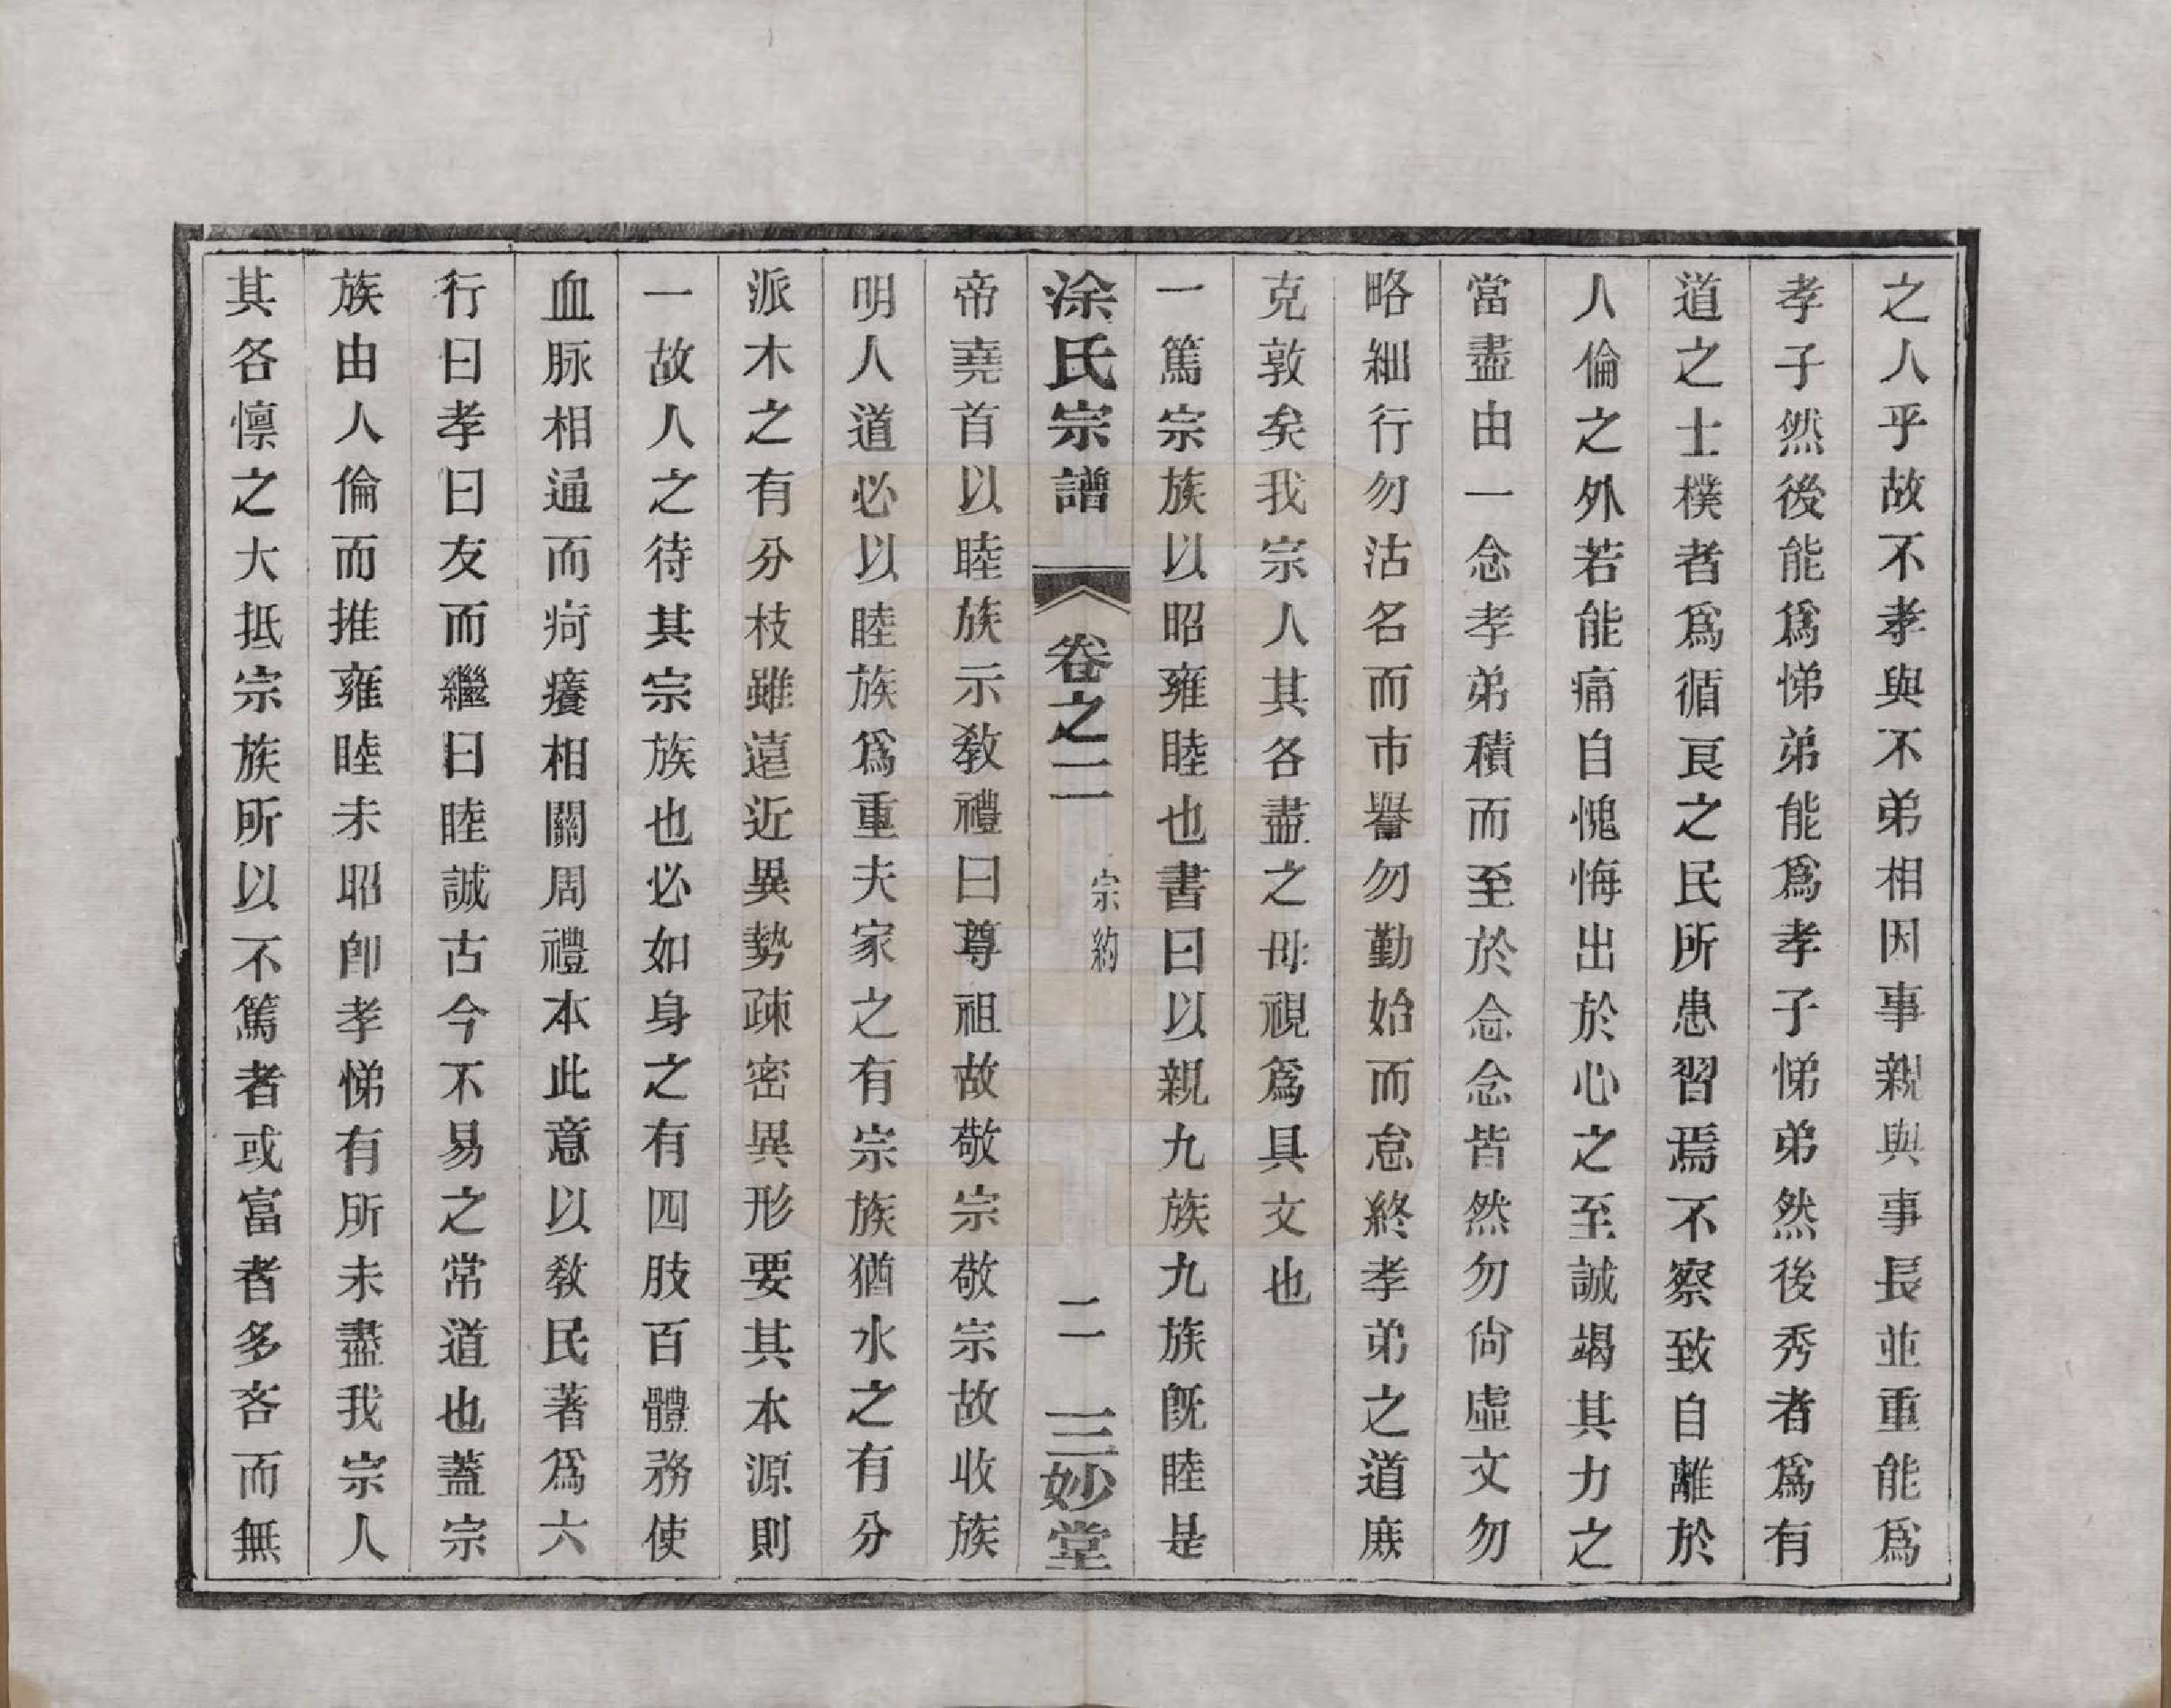 之人乎故不孝與不弟相因事親與事長並重能爲
孝子然後能爲悌弟能爲孝子悌弟然後秀者爲有
道之士樸者爲循良之民所患習焉不察致自離於
人倫之外若能痛自愧悔出於心之至誠竭其力之
當盡由一念孝弟積而至於念念皆然勿尙虛文勿
略細行勿沽名而市譽勿勤始而怠終孝弟之道庶
克敦矣我宗人其各盡之毋視爲具文也
一篤宗族以昭雍睦也書曰以親九族九族旣睦是
涂氏宗譜 卷之二 宗約 二 三妙堂
帝堯首以睦族示敎禮曰尊祖故敬宗敬宗故收族
明人道必以睦族爲重夫家之有宗族猶水之有分
派木之有分枝雖遠近異勢疎密異形要其本源則
一故人之待其宗族也必如身之有四肢百體務使
血脉相通而疴癢相關周禮本此意以敎民著爲六
行曰孝曰友而繼曰睦誠古今不易之常道也蓋宗
族由人倫而推雍睦未昭卽孝悌有所未盡我宗人
其各懍之大抵宗族所以不篤者或富者多吝而無